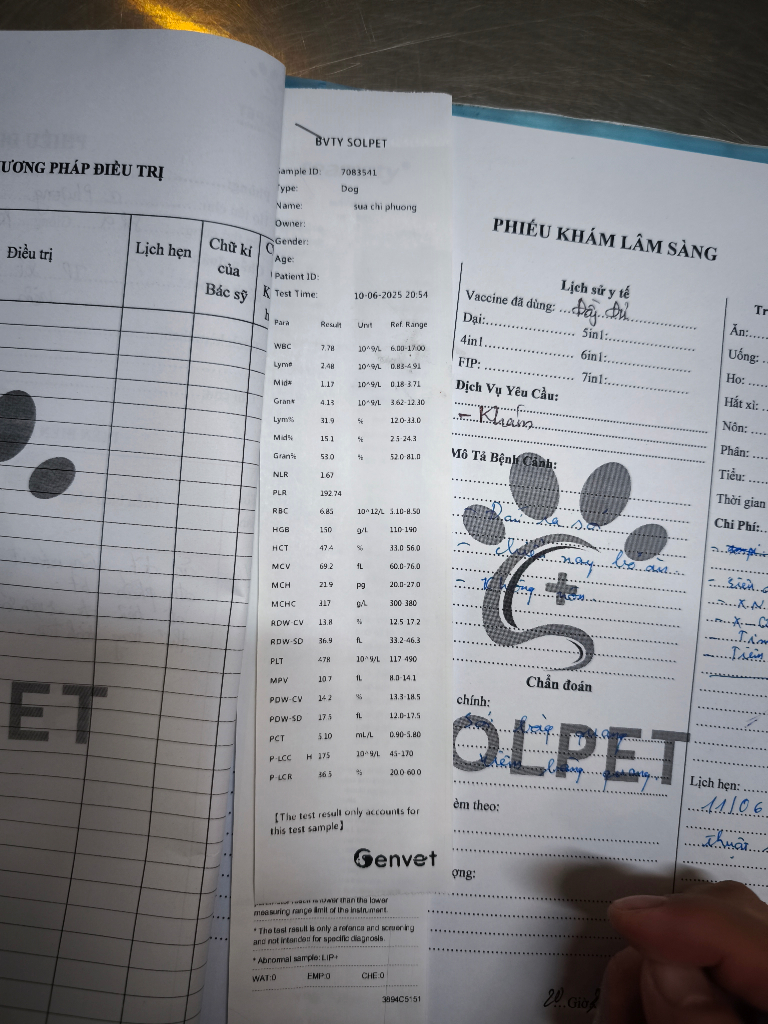 ƯƠNG PHÁP ĐIỀU TRỊ
Điều trị
Lịch hẹn
Chữ kí của Bác sỹ
PET
BVTY SOLPET
Sample ID: 7083541
Type: Dog
Name: sua chi phuong
Owner:
Gender:
Age:
Patient ID:
Test Time: 10-06-2025 20:54
Para Result Unit Ref. Range
WBC 7.78 10^9/L 6.00-17.00
Lym# 2.48 10^9/L 0.83-4.91
Mid# 1.17 10^9/L 0.18-3.71
Gran# 4.13 10^9/L 3.62-12.30
Lym% 31.9 % 12.0-33.0
Mid% 15.1 % 2.5-24.3
Gran% 53.0 % 52.0-81.0
NLR 1.67
PLR 192.74
RBC 6.85 10^12/L 5.10-8.50
HGB 150 g/L 110-190
HCT 47.4 % 33.0-56.0
MCV 69.2 fL 60.0-76.0
MCH 21.9 pg 20.0-27.0
MCHC 317 g/L 300-380
RDW-CV 13.8 % 12.5-17.2
RDW-SD 36.9 fL 33.2-46.3
PLT 478 10^9/L 117-490
MPV 10.7 fL 8.0-14.1
PDW-CV 14.2 % 13.3-18.5
PDW-SD 17.5 fL 12.0-17.5
PCT 5.10 mL/L 0.90-5.80
P-LCC H 175 10^9/L 45-170
P-LCR 36.5 % 20.0-60.0
【The test result only accounts for
this test sample】
Genvet
is lower than the lower
measuring range limit of the instrument.
* The test result is only a refence and screening
and not intended for specific diagnosis.
* Abnormal sample: LIP+
WAT:0 EMP:0 CHE:0
3894C5151
PHIẾU KHÁM LÂM SÀNG
Lịch sử y tế
Vaccine đã dùng: Đầy Đủ
Dại: 5in1:
4in1 6in1:
FIP: 7in1:
Dịch Vụ Yêu Cầu:
- Khám
Mô Tả Bệnh Cảnh:
nay bỏ ăn
- Không nôn
Chẩn đoán
chính:
bàng quang
viêm bàng quang
SOLPET
èm theo:
ợng:
Tr
Ăn:
Uống:
Ho:
Hắt xì:
Nôn:
Phân:
Tiểu:
Thời gian
Chi Phí:
- X.N
Lịch hẹn:
11/06
thuật
20 Giờ